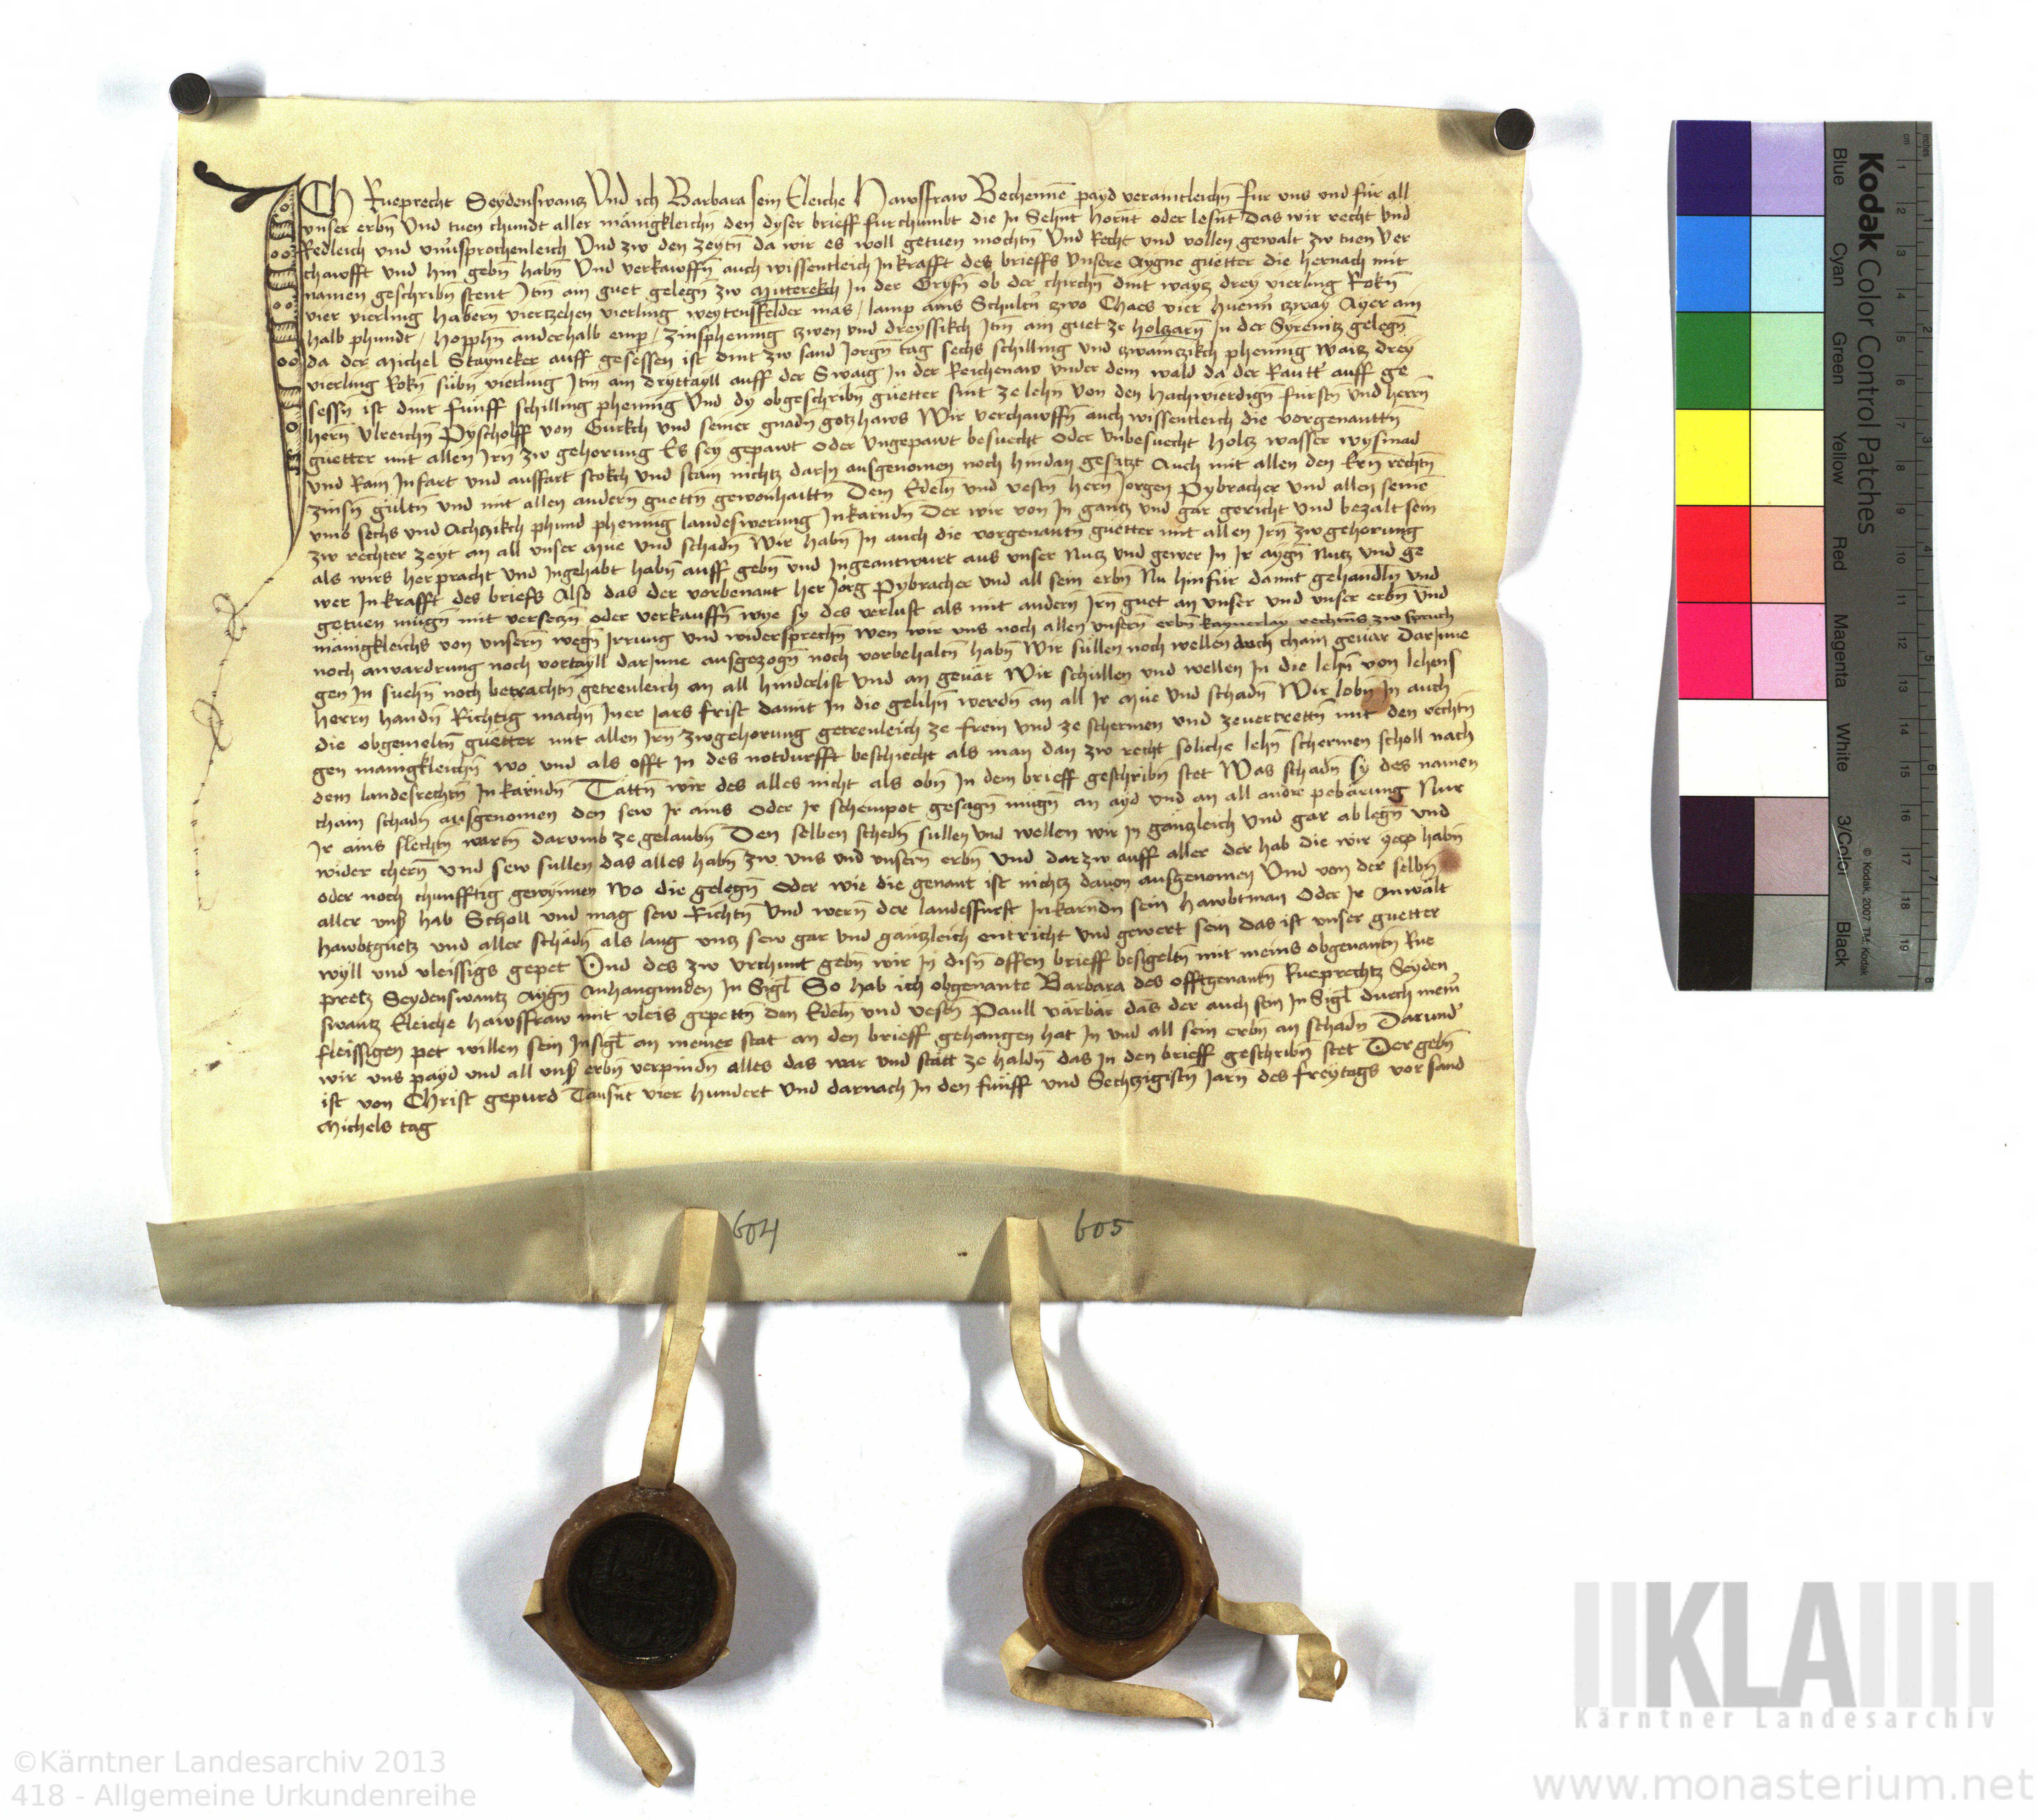 ICH Rueprecht Seydenswancz Vnd ich Barbara sein Eleiche Hawssfraw Bechennē payd veraintleichn̄ fur vns vnd für all
vnser erbn̄ Vnd tuen chundt aller mänigkleichn̄ den dyser brieff furchumbt die In Sehnt hornt oder lesnt das wir recht Vnd
Redleich vnd vnūsprochenleich Vnd zw den zeytn̄ da wir es woll getuen mochtn̄ Vnd Recht vnd vollen gewalt zw tuen Ver
chawfft vnd hin gebn̄ habn̄ Vnd verkawffn̄ auch wissentleich In krafft des brieffs Vnsere Aygne guetter die hernach mit
namen geschribn̄ stent Itm̄ am guet gelegn̄ zw Mitterekch In der Gryfn̄ ob der chirchn̄ dint wayz drey vierling Rokn̄
vier vierling habern vierzehen vierling weytensfelder mas / lamp ains Schultn̄ zwo Chaes vier huenn̄ zway Ayer ain
halb phundt / hopphn̄ anderhalb emp / Zinsphening zwen vnd dreyssikch Itm̄ am guet ze holczarn̄ In der Syrnicz gelegn̄
da der Michel Stayneker auff gesessen ist dint zw sand Jorgn̄ tag sechs schilling vnd zwainczikch phening waiz drey
vierling Rokn̄ sübn̄ vierling Itm̄ am dryttayll auff der Swaig In der Reichenaw vnder dem wald da der Rautt' auff ge
sessn̄ ist dint fünff schilling phening Vnd dy obgeschribn̄ güetter sint ze lehn̄ Von den hachwierdign̄ fürstn̄ Vnd herrn
hern̄ Vlreichn̄ Pyscholff von Gurkch vnd seiner gnadn̄ gotzhaws Wir verchawffn̄ auch wissentleich die vorgenanttn̄
guetter mit allen Irn̄ zw gehorung Es sey gepawt Oder Vngepawt besuecht Oder Vnbesuecht holtz wasser wysmad
vnd Rain Infart vnd aussfart stokch vnd stain nichtz darIn ausgenomen noch hindan gesatzt Auch mit allen den Ern̄ rechtn̄
zinsn̄ gültn̄ vnd mit allen andern̄ guettn̄ gewonhaittn̄ Dem Edeln̄ vnd vestn̄ hern̄ Jorgen Pybracher Vnd allen seinē
vmb sechs vnd Achczikch phund phening landeswerung In karndn̄ Der wir von In gantz vnd gar gericht vnd bezalt sein
zw rechter zeyt an all vnser Mue Vnd schadn̄ Wir habn̄ In auch die vorgenantn̄ guetter mit allen Irn̄ zwgehorung
als wirs herpracht vnd Ingehabt habn̄ auff gebn̄ vnd Ingeantwurt aus vnser Nutz Vnd gewer In Ir aygn̄ Nutz vnd ge
wer In krafft des briefs Also das der vorbenant her Jörg Pybracher vnd all sein erbn̄ Nu hinfür damit gehandln̄ vnd
getuen mugn̄ mit versetzn̄ oder verkauffn̄ wye sy des verlust als mit andern̄ Irn̄ guet an vnser vnd vnser erbn̄ vnd
mänigkleichs von vnsern̄ wegn̄ Irrung vnd widersprechn̄ wen wir vns noch allen vnsern̄ erbn̄ kaynerlay rechtns zw spruch
noch anvardrung noch vortayll darInne ausgezogn̄ noch vorbehaltn̄ habn̄ Wir sullen noch wellen auch chain gevär DarInne
gen In suchn̄ noch betrachtn̄ getreuleich an all hinderlist Vnd an gevär Wir schullen vnd wellen In die lehn̄ von lehens
herrn̄ handn̄ Richtig machn̄ Iner Jars frist damit In die gelihn̄ werdn̄ an all Ir Müe Vnd schadn̄ Wir lobn̄ In auch
die obgemeltn̄ guetter mit allen Irn̄ zwgehorung getreuleich ze frein vnd ze schermen vnd zeuertrettn̄ mit den rechtn̄
gen mänigkleichn̄ wo vnd als offt In des notdurfft beschiecht als man dan zw recht soliche lehn̄ schermen scholl nach
dem landesrechtn̄ In karndn̄ Tättn̄ wir des alles nicht als obn̄ In dem brieff geschribn̄ stet Was schadn̄ sy des namen
chain schadn̄ ausgenomen den sew Ir ains Oder Ir schempot gesagn̄ mugn̄ an ayd vnd an all andre pebärung Nur
Ir ains slechtn̄ wartn̄ darumb ze gelaubn̄ Den selben schedn̄ sullen Vnd wellen wir In gänczleich Vnd gar ablegn̄ vnd
wider chern̄ Vnd sew sullen das alles habn̄ zw vns vnd vnsern̄ erbn̄ Vnd dar zw auff aller der hab die wir habn̄
oder noch chunfftig gewynnen wo die gelegn̄ Oder wie die genant ist nichtz dauon ausgenomen Vnd von der selbn̄
aller vns̄ hab Scholl vnd mag sew Richtn̄ Vnd wern̄ der landesfurst In karndn̄ sein hawbtman Oder Ir Anwalt
hawbtguetz vnd aller schädn̄ als lang vntz sew gar Vnd gänczleich entricht vnd gewert sein das ist vnser guetter
wyll vnd vleissigs gepet Vnd des zw vrchunt gebn̄ wir In disn̄ offen brieff besigeltn̄ mit meins obgenantn̄ Rue
pretz Seydenswantz Aygn̄ Anhangunden In Sigl̄ So hab ich obgenante Barbara des offtgenantn̄ Rueprechtz Seyden
swantz Eleiche hawssfraw mit vleis gepettn̄ den Edeln̄ vnd vestn̄ Paull värbär das der auch sein In Sigl̄ durch mein̄
fleissigen pet willen sein Insigl̄ an meiner stat an den brieff gehangen hat In vnd all sein erbn̄ an schadn̄ Darund'
wir vns payd vnd all vns̄ erbn̄ verpindn̄ alles das war vnd statt ze haldn̄ das In den brieff geschribn̄ stet Der gebn̄
ist von Christ gepurd Tausn̄t vier hundert Vnd darnach In den funff vnd Sechtzigistn̄ Jarn̄ des freytags vor sand
Michels tag
604 605
Kodak Color Control Patches
Blue Cyan Green Yellow Red Magenta White 3/Color Black
© Kodak, 2007 TM: Kodak
inches 1 2 3 4 5 6 7 8
cm 1 2 3 4 5 6 7 8 9 10 11 12 13 14 15 16 17 18 19
KLA
Kärntner Landesarchiv
©Kärntner Landesarchiv 2013
418 - Allgemeine Urkundenreihe
www.monasterium.net